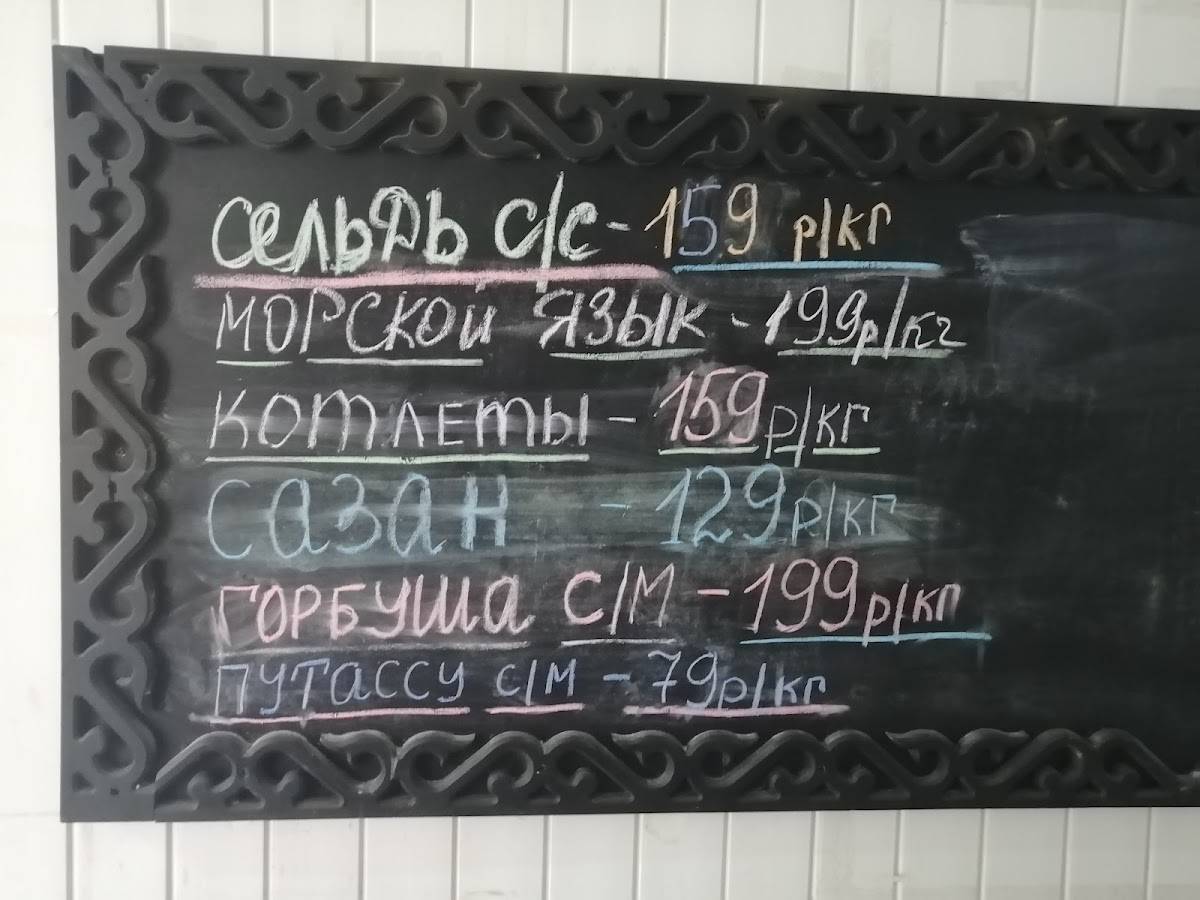 Сельдь с/с - 159 р/кг
Морской язык - 199р/кг
Котлеты - 159р/кг
Сазан - 129р/кг
Горбуша с/м - 199р/кг
Путассу с/м - 79р/кг